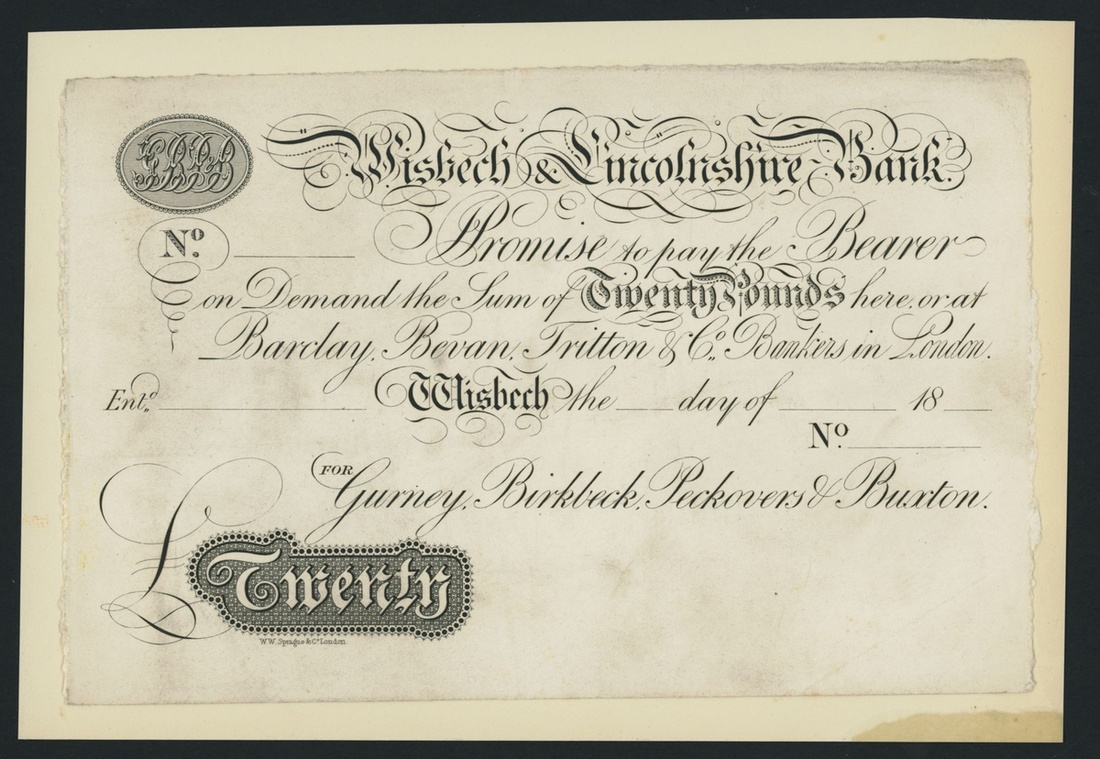 Wisbech & Lincolnshire Bank.
No. Promise to pay the Bearer
on Demand the Sum of Twenty Pounds here, or at
Barclay, Bevan, Tritton & Co. Bankers in London.
Entd. Wisbech the day of 18
No.
FOR Gurney, Birkbeck, Peckovers & Buxton.
£ Twenty
W.W. Sprague & Co. London.